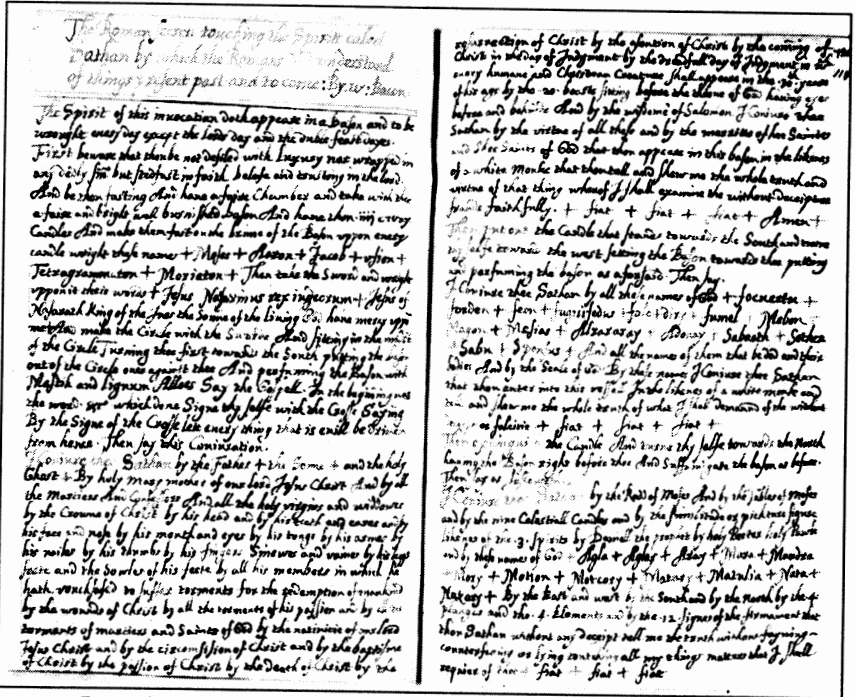 The Roman secret touching the Spirit called
Sathan by which the Romans understood
of things present past and to come: By. w: Bacon.
The Spirit of this invocation doth appeare in a Bason and to be
wrought every day except the lords day and the duble feast dayes.
First beware that thou be not defiled with Luxury nor wrapped in
any dedly sin but stedfast in faith belefe and trusting in the lord.
And be thou fasting And have a faire Chamber and take with thee
a faire and bright well burnished bason And have then iiij every
Candles And make them fast on the brime of the Bason uppon every
candle wright these name + Moses + Aaron + Jacob + usion +
Tetragrammaton + Moriaton + Then take the Sword and wright
uppon it their words + Jesus Nasarenus rex iudeorum + Jesus of
Nasarath King of the Jues the Sonne of the Living God have mercy uppon
me And make the Circle with the And sitting in the midst
of the Circle Turning thee first towards the South putting the bason
out of the Circle over against thee And perfuming the Bason with
Mastick and Lignum Alloes Say the Gospell. In the beginning was
the word &c which done Signe thy selfe with the Crosse Saying
By the Signe of the Crosse let every thing that is evill be driven
from hence. Then say this Coniuration.
I Coniure thee Sathan by the Father + the Sonne + and the holy
Ghost + By holy Mary mother of our lord Jesus Christ And by all
the Martirs And Confessors And all the holy virgins and widdowes
by the Crowne of Christ by his head and by his and eares and by
his face and nose by his mouth and eyes by his tonge by his armes by
his by his thumbs by his fingers Synewes and vaines by his legs
feete and the Sowles of his feete by all his members in which he
hath vouchsafed to suffer torments for the redemption of mankind
by the wounds of Christ by all the torments of his passion and by
torments of martirs and Saints of God by the nativitie of our lord
Jesus Christ and by the circumsision of Christ and by the baptisme
of Christ by the passion of Christ by the Death of Christ by the
resurrection of Christ by the assention of Christ by the coming of
Christ in the day of Judgment by the dreadfull day of Judgment in
every humane and Christian Creature shall appeare in the 30th yeare
of his age by the 20. beasts sitting before the throne of God having eyes
before and behinde And by the wisdome of Salomon I Coniure thee
Sathan by the virtue of all these and by the of hee Saints
and Shee Saints of God that thou appeare in this bason in the likenes
of a white Monke that thou tell and shew me the whole truth and
virtue of that thing whereof I shall examine thee without deception
fraude faithfully. + fiat + fiat + fiat + Amen +
Then put out the Candle that stands towards the South and turne
thy selfe towards the west setting the Bason towards thee putting
and perfuming the bason as aforesaid. Then say.
I Coniure thee Sathan by all these names of God +
+ + +
+ Mesias + + Adonay + Sabaoth +
+ + And all the names of them that be ded and their
bodies And by the Seale of God. By these names I Coniure thee Sathan
that thou enter into this vessell In the likenes of a white monke and
tell and shew me the whole truth of what I shall demaund of thee without
or falsitie + fiat + fiat + fiat +
Then the Candle And turne thy selfe towards the North
having the Bason right before thee And Suffumigate the bason as before.
Then say as
I Coniure thee Sathan by the Rod of Moses And by the tables of Moses
and by the nine Celestiall Candles and by the similitude or pickture figure
likenes of the 3. spirits by Daniell the prophet by holy
and by these names of God + Agla + Aglas + + +
+ Motion + + + +
+ By the East and west by the South and by the North by the 4
and the 4. Elements and by the 12 Signes of the firmament that
thou Sathan without any deceipt tell me the truth without fayning
counterfeiting or lying touching all my things matters that I shall
require of thee + fiat + fiat + fiat